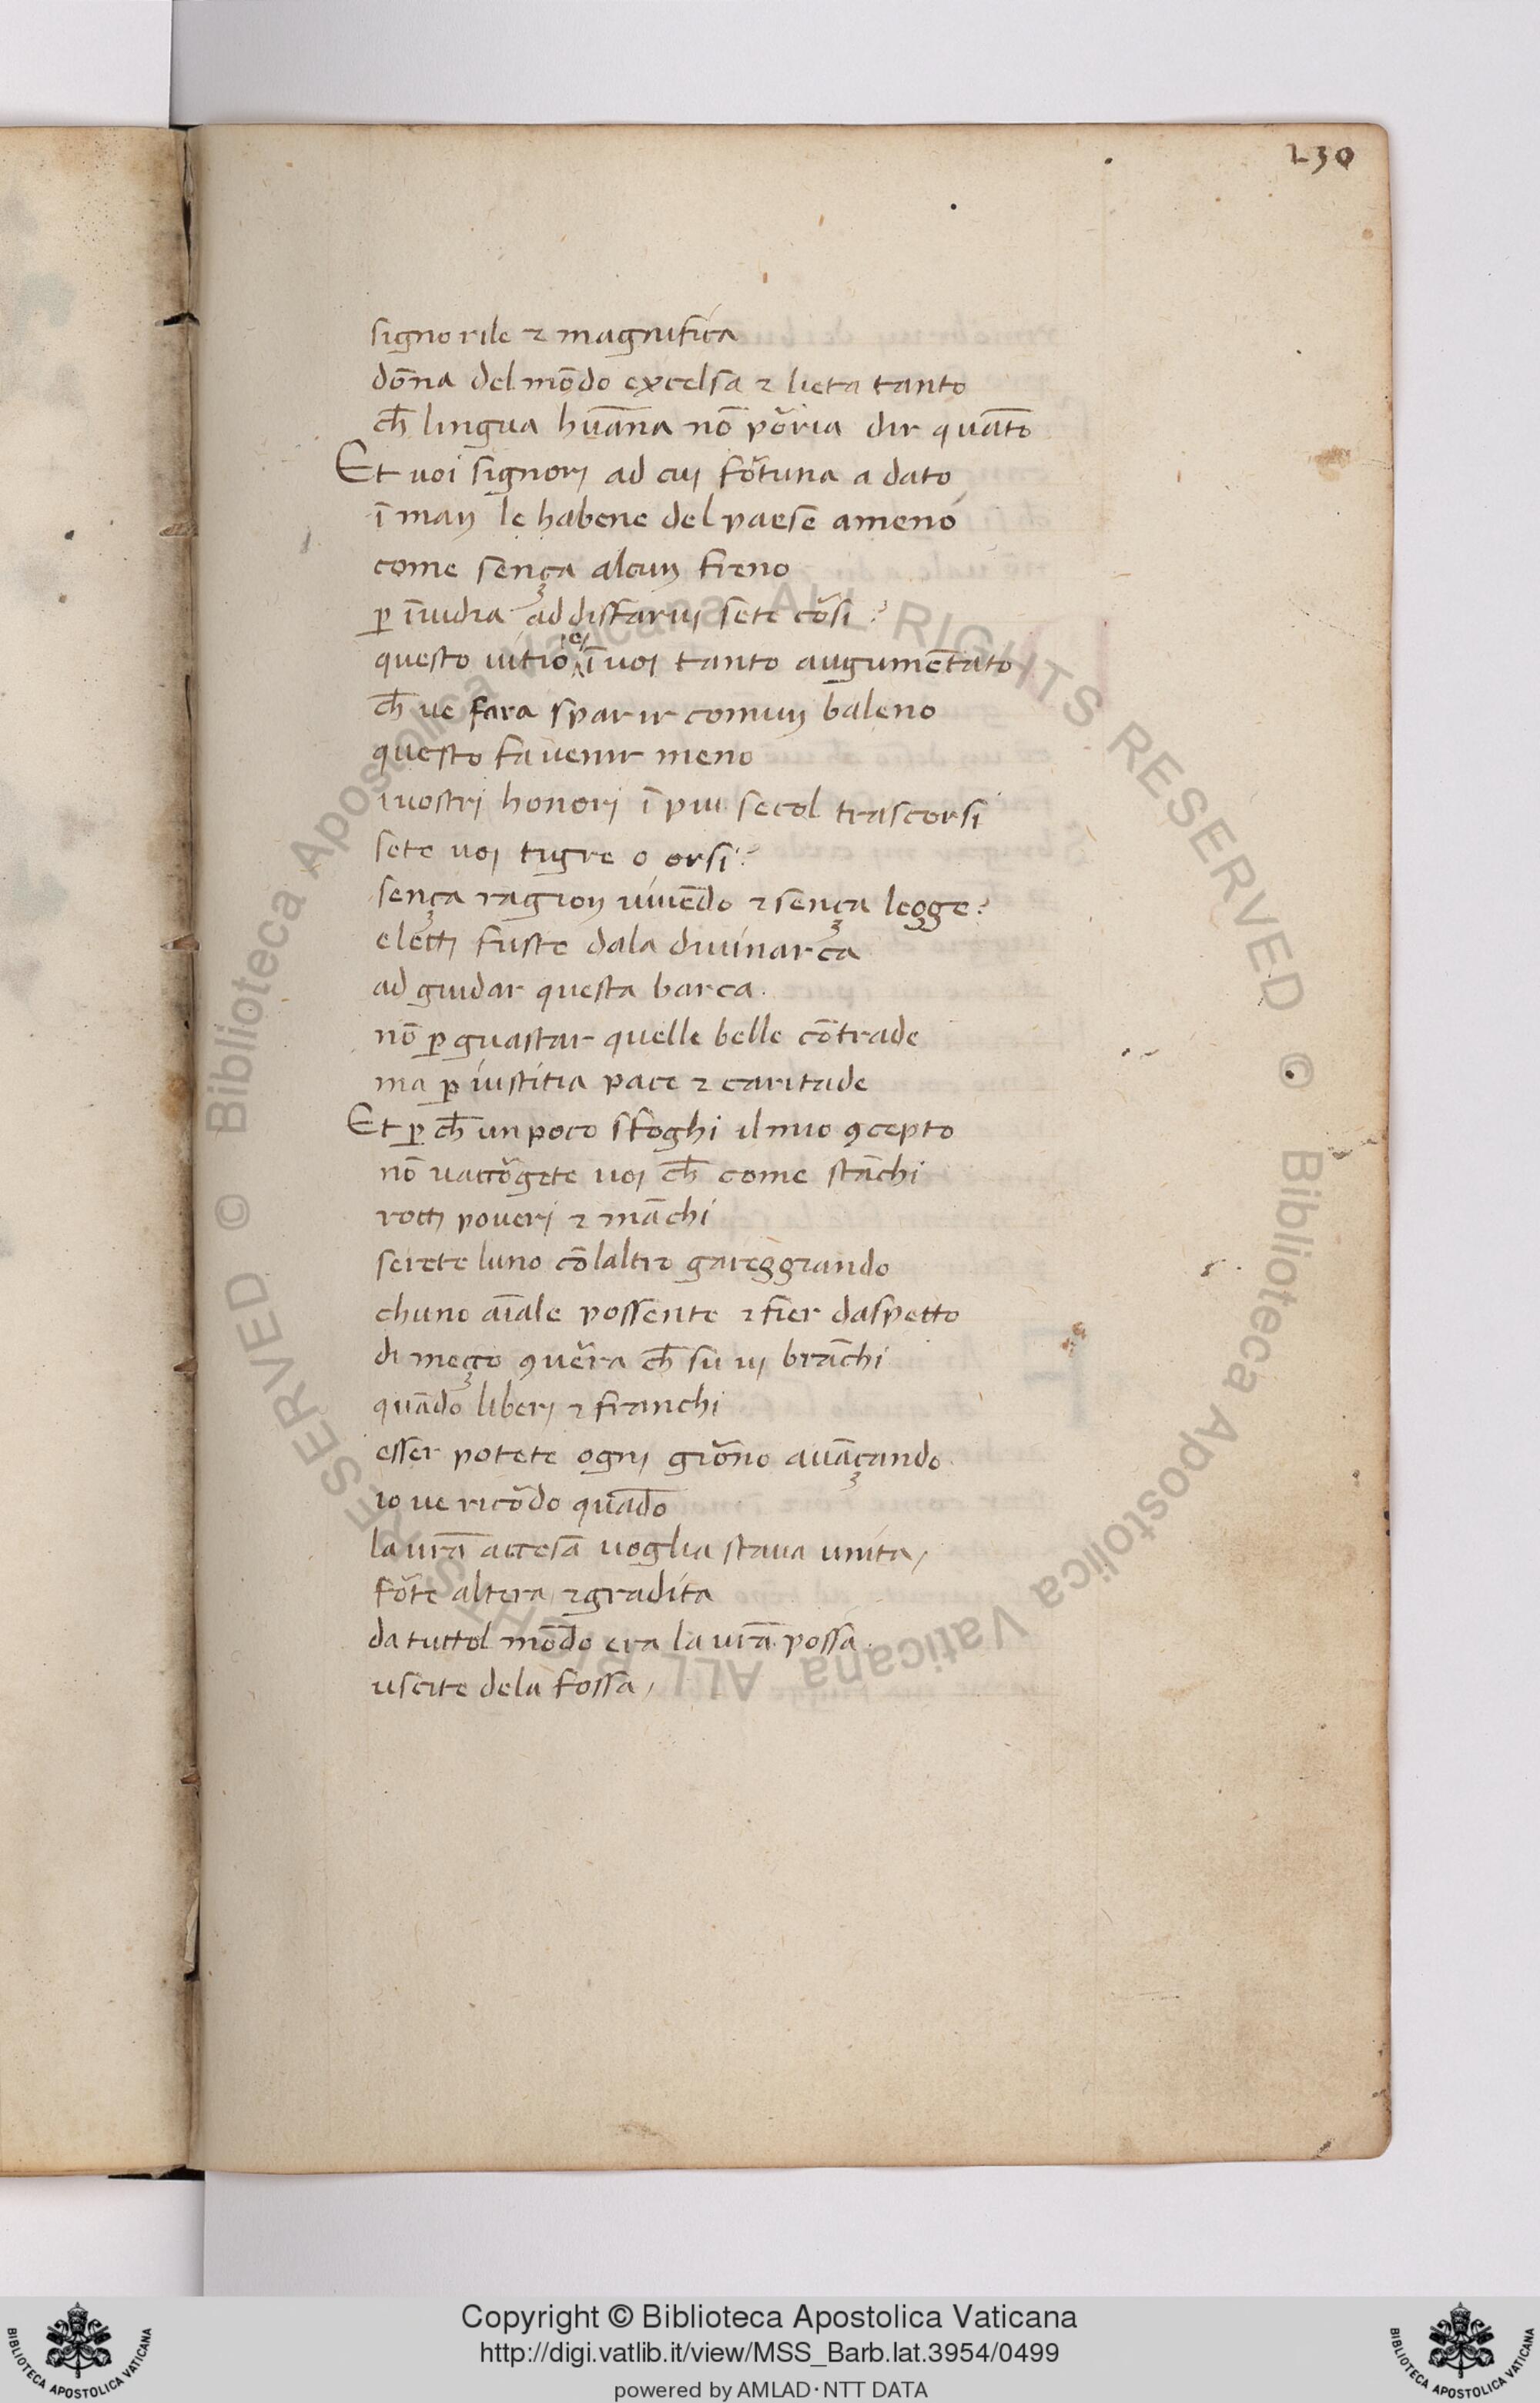 230
signorile ⁊ magnifica
dōna del mōdo excelsa ⁊ lieta tanto
ch̄ lingua hūāna nō pōria dir quāto
Et uoi signorj ad cuj fōrtuna a dato
ī man le habene del paese ameno
come sença alcun freno
ꝑ īuidia addisfaruj sete cōrsi?
questo uitio e ī uoi tanto augumētato
ch̄ ue fara sparir comun baleno
questo fa uenir meno
i uostrj honorj ī piu secol trascorsi
sete uoj tigre o orsi?
sença ragion uiuēdo ⁊ sença legge?
elettj fuste dala diuinarca
ad guidar questa barca.
nō ꝑ guastar quelle belle cōtrade
ma ꝑ iustitia pace ⁊ caritade
Et ꝑ ch̄ un poco sfoghi il mio ꝯcepto
nō uaccōrgete uoj ch̄ come stāchi
rottj pouerj ⁊ māchi
serete luno cōlaltro gareggiando
chuno aīale possente ⁊ fier daspetto
di meço ꝯuerra ch̄ su uj brāchi
quādo liberj ⁊ franchi
esser potete ognj giōrno auāçando.
io ue ricōrdo quādo
la ur̄a accesa uoglia staua unita,
fōrte altera ⁊ gradita
da tuttol mōdo era la ur̄a possa.
uscite dela fossa,
Copyright © Biblioteca Apostolica Vaticana
http://digi.vatlib.it/view/MSS_Barb.lat.3954/0499
powered by AMLAD·NTT DATA
BIBLIOTECA APOSTOLICA VATICANA
BIBLIOTECA APOSTOLICA VATICANA
© Biblioteca Apostolica Vaticana ALL RIGHTS RESERVED © Biblioteca Apostolica Vaticana ALL RIGHTS RESERVED